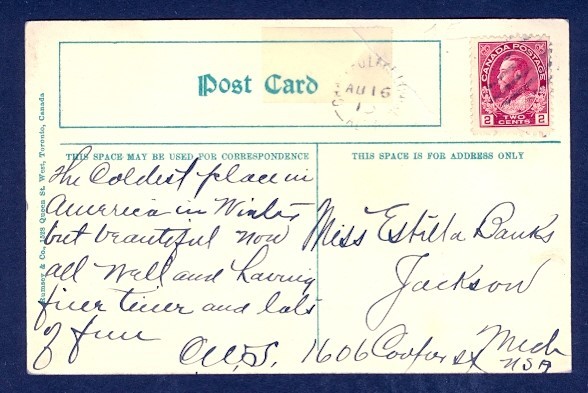 Post Card
AU 16
CANADA POSTAGE
2 TWO CENTS 2
THIS SPACE MAY BE USED FOR CORRESPONDENCE
THIS SPACE IS FOR ADDRESS ONLY
Rumsey & Co., 1528 Queen St. West, Toronto, Canada
The Coldest place in
America in Winter
but beautiful now
all well and having
finer time and lots
of fun
Miss Estilla Banks
Jackson
1606 Cooper St Mich
USA